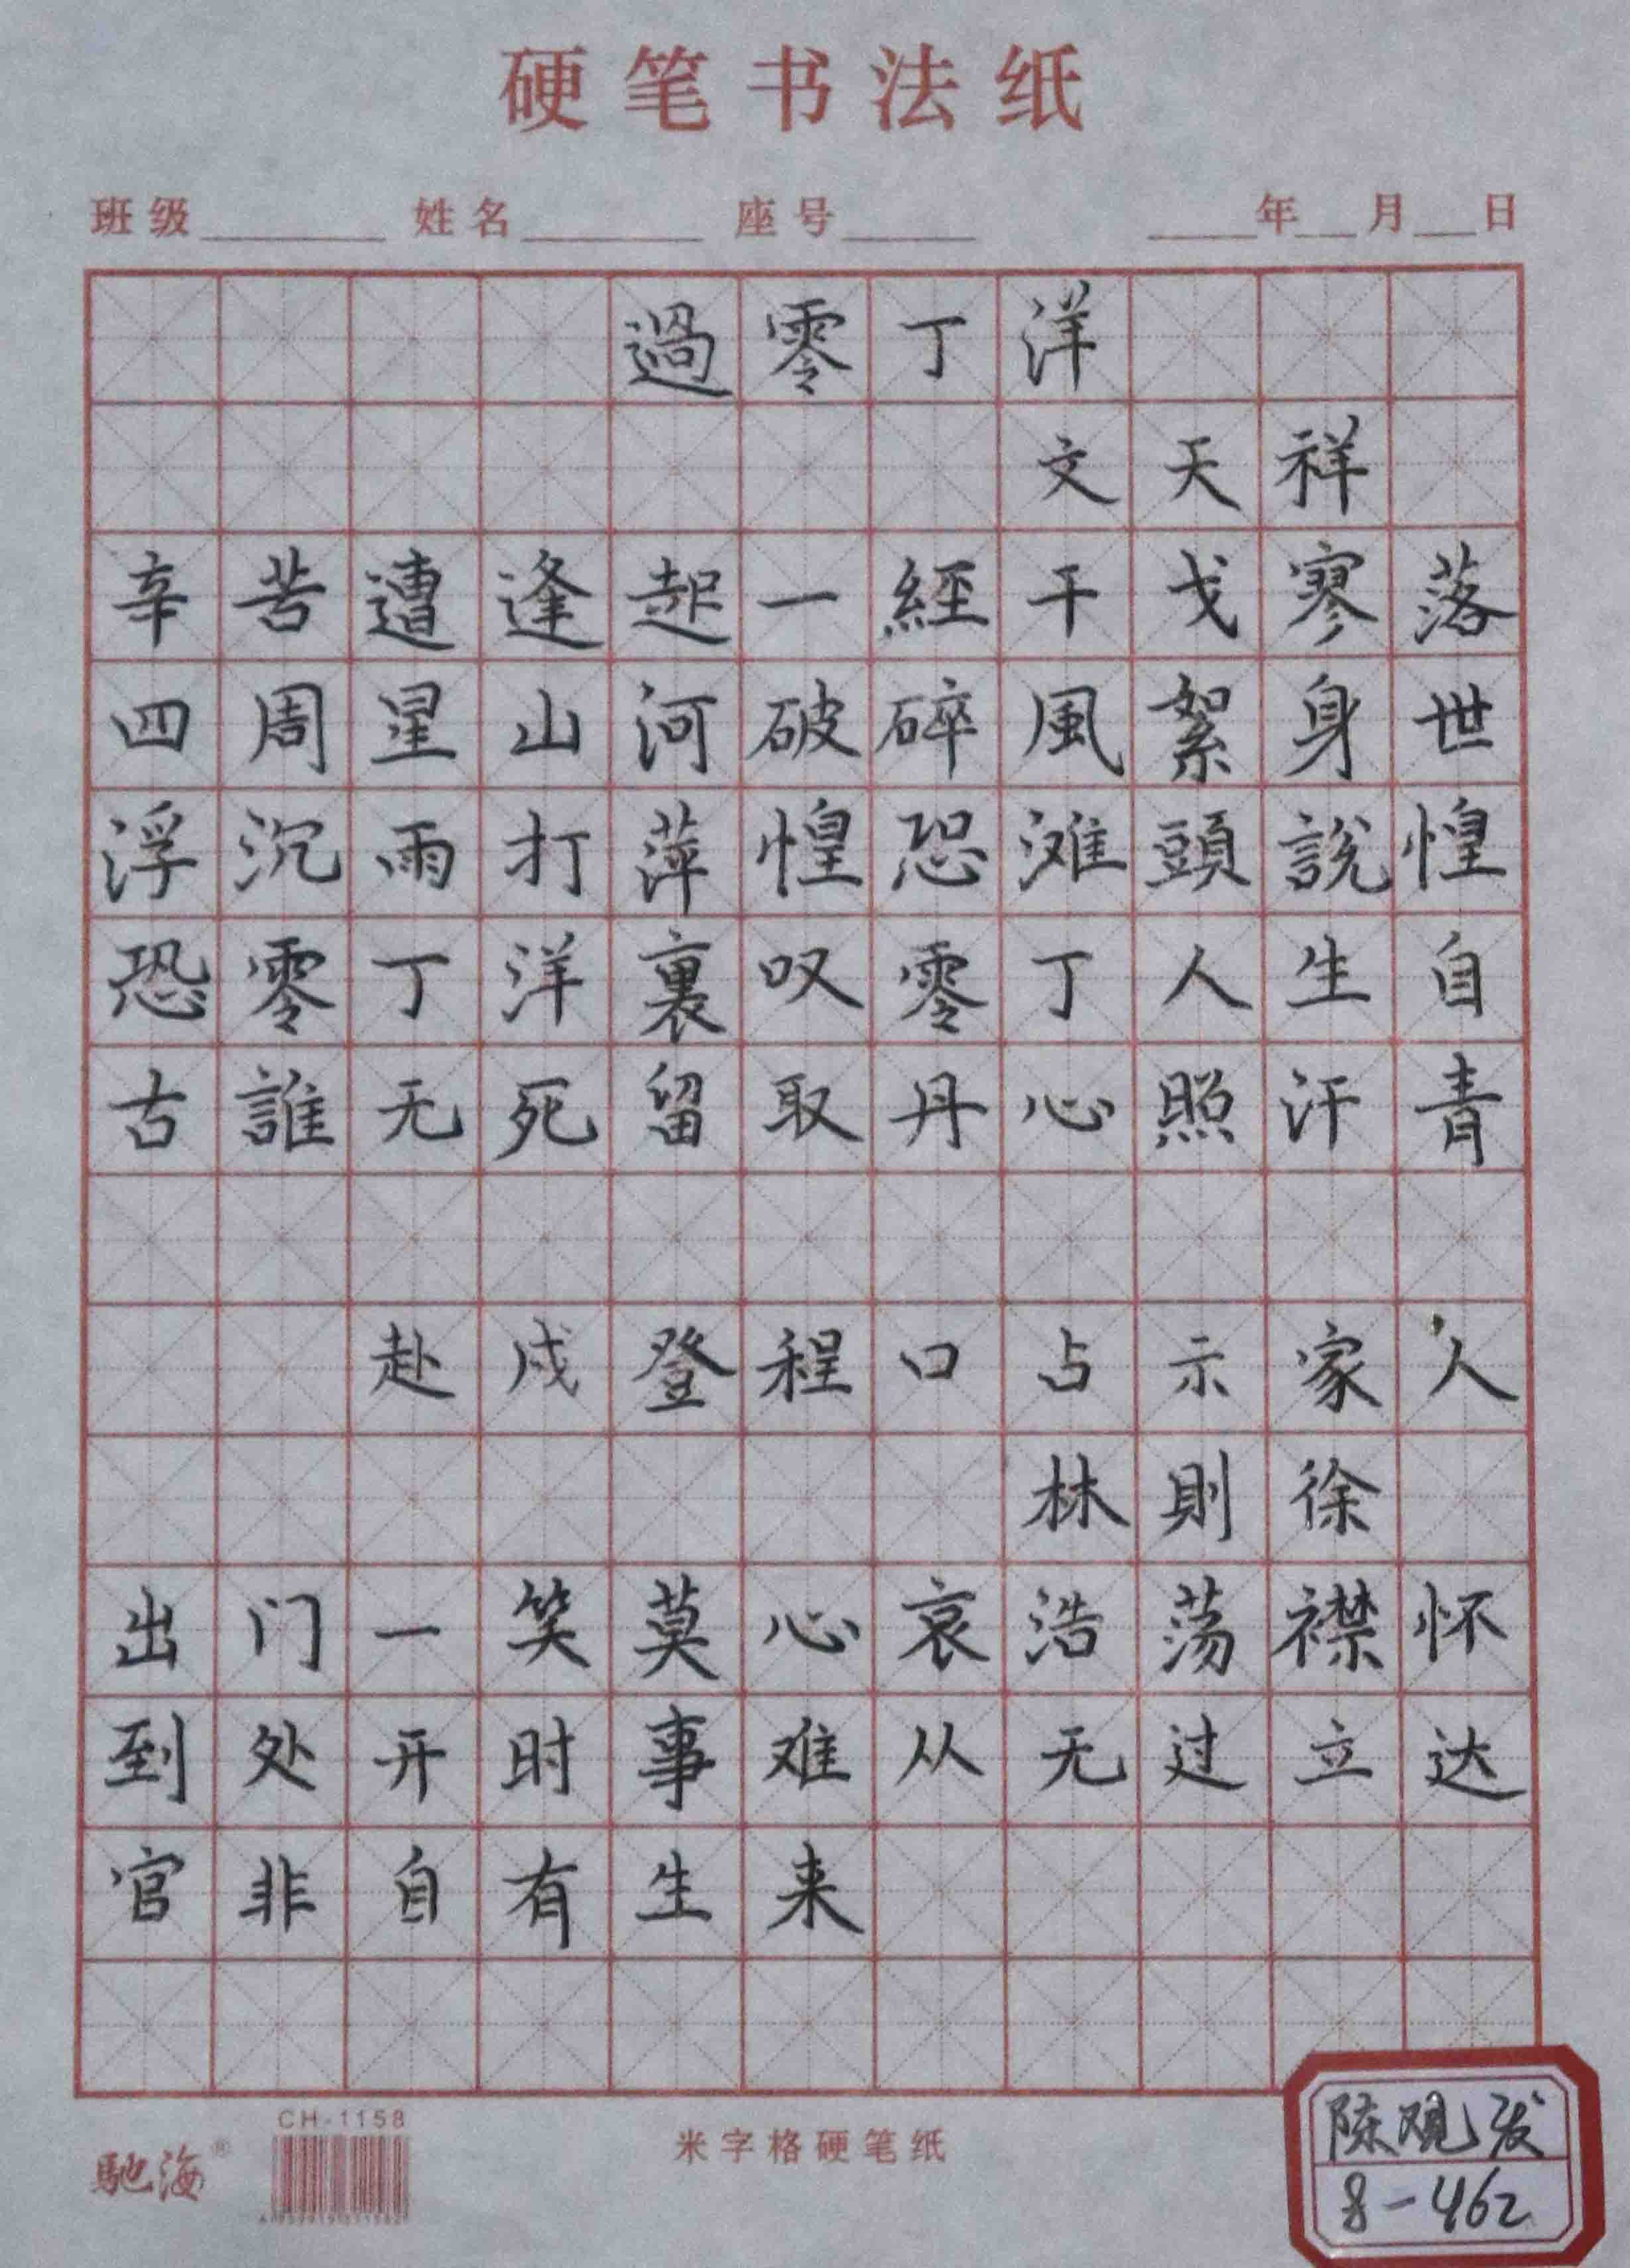 硬笔书法纸
班级 姓名 座号 年 月 日
過零丁洋
文天祥
辛苦遭逢起一經干戈寥落
四周星山河破碎風絮身世
浮沉雨打萍惶恐滩頭說惶
恐零丁洋裏叹零丁人生自
古誰无死留取丹心照汗青
赴戍登程口占示家人
林則徐
出门一笑莫心哀浩荡襟怀
到处开时事难从无过立达
官非自有生来
CH-1158
馳海®
米字格硬笔纸
陈观发
8-462